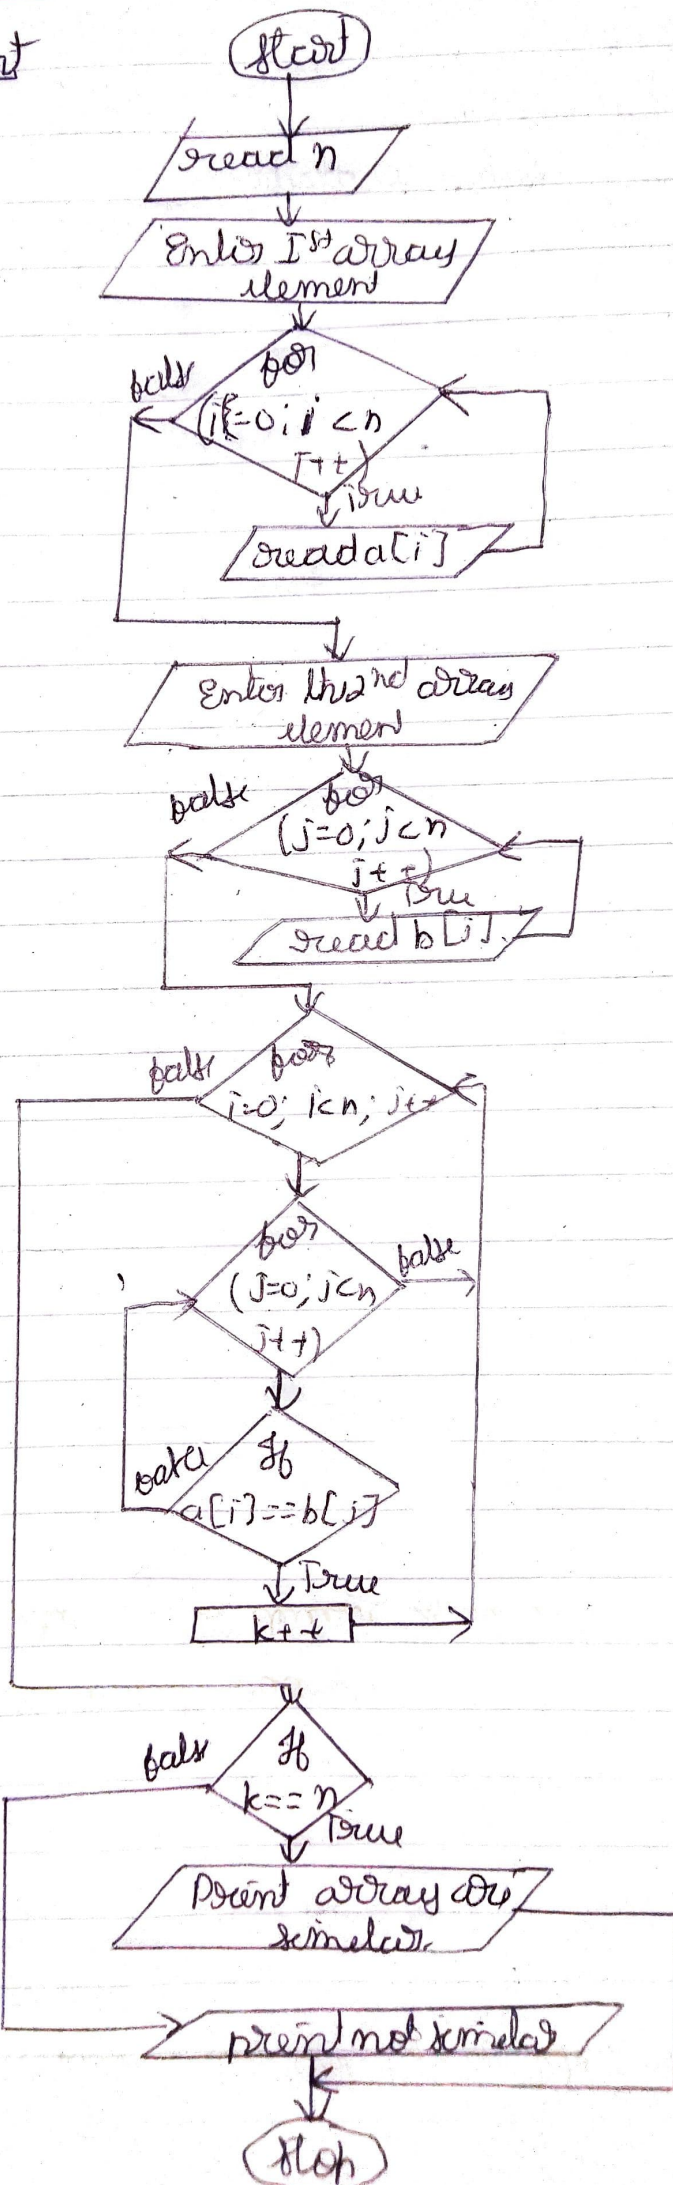 Start
read n
Enter Ist array
element
false
for
(i=0; i<n
I++)
True
read a[i]
Enter the 2nd array
element
false
for
(j=0; j<n
j++)
True
read b[j]
false
for
i=0; i<n; i++
for
false
(J=0; j<n
j++)
If
a[i]==b[j]
True
k++
false
If
k==n
True
Print array are
similar
print not similar
Stop